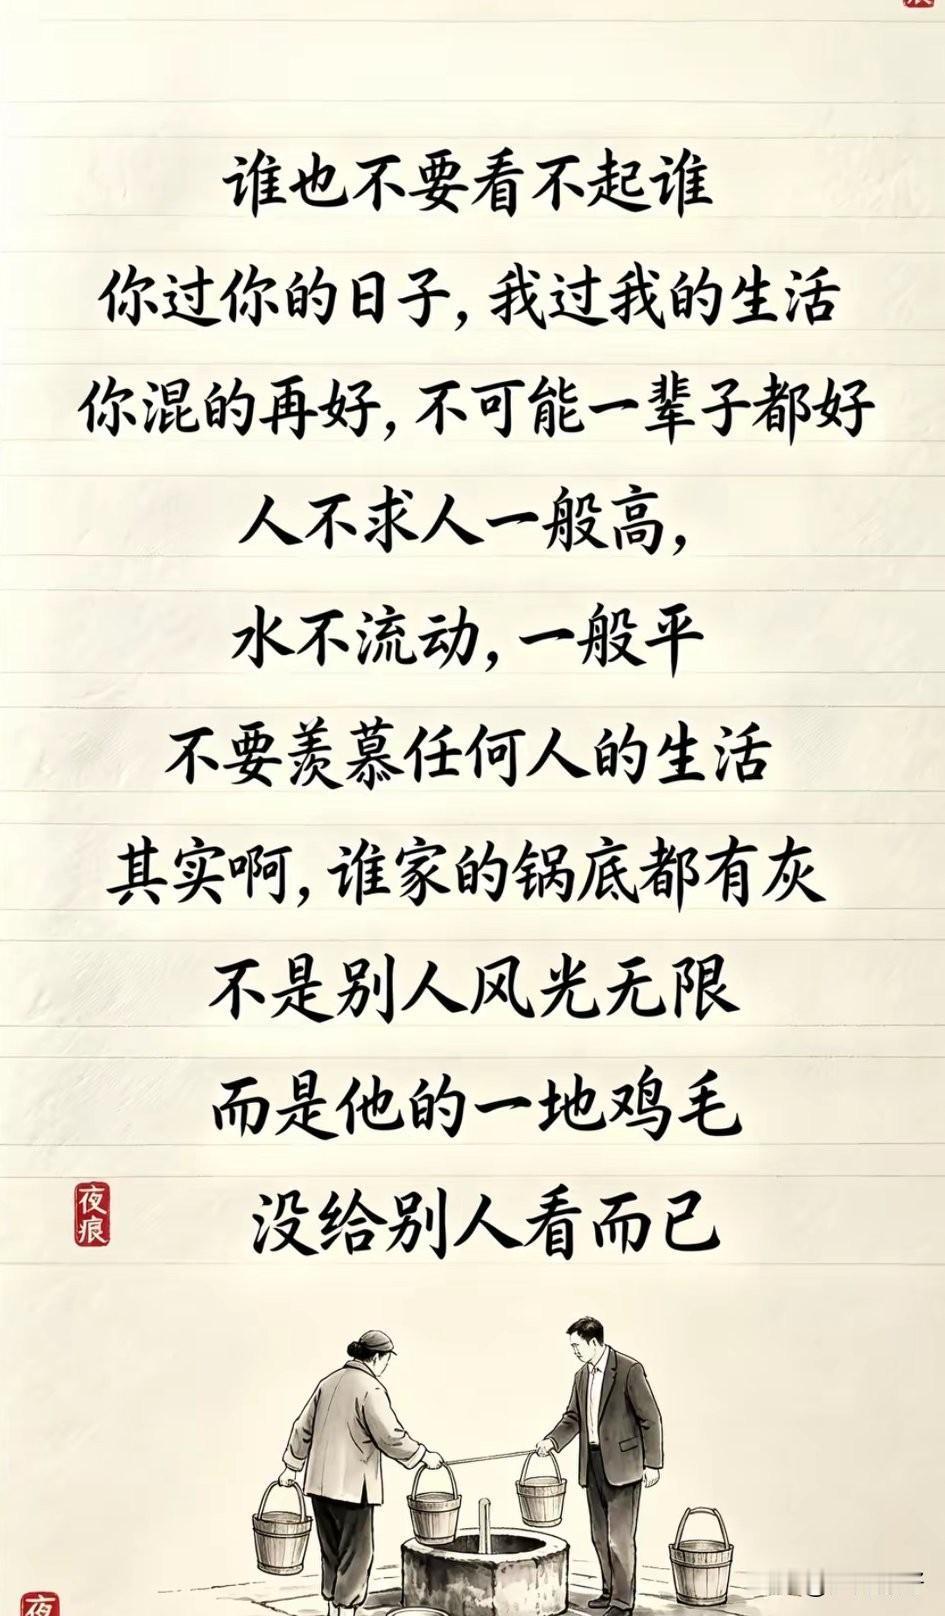 谁也不要看不起谁
你过你的日子，我过我的生活
你混的再好，不可能一辈子都好
人不求人一般高，
水不流动，一般平
不要羡慕任何人的生活
其实啊，谁家的锅底都有灰
不是别人风光无限
而是他的一地鸡毛
没给别人看而已
夜痕
夜